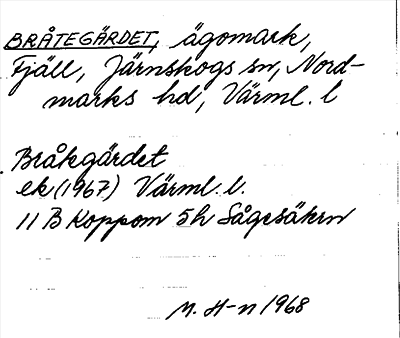 BRÅTEGÄRDET, ägomark,
Fjäll, Järnskogs sn, Nord-
marks hd, Värml. l
Bråkgärdet
ek (1967) Värml. l.
11 B Koppom 5h Sågesäkrn
M. H-n 1968